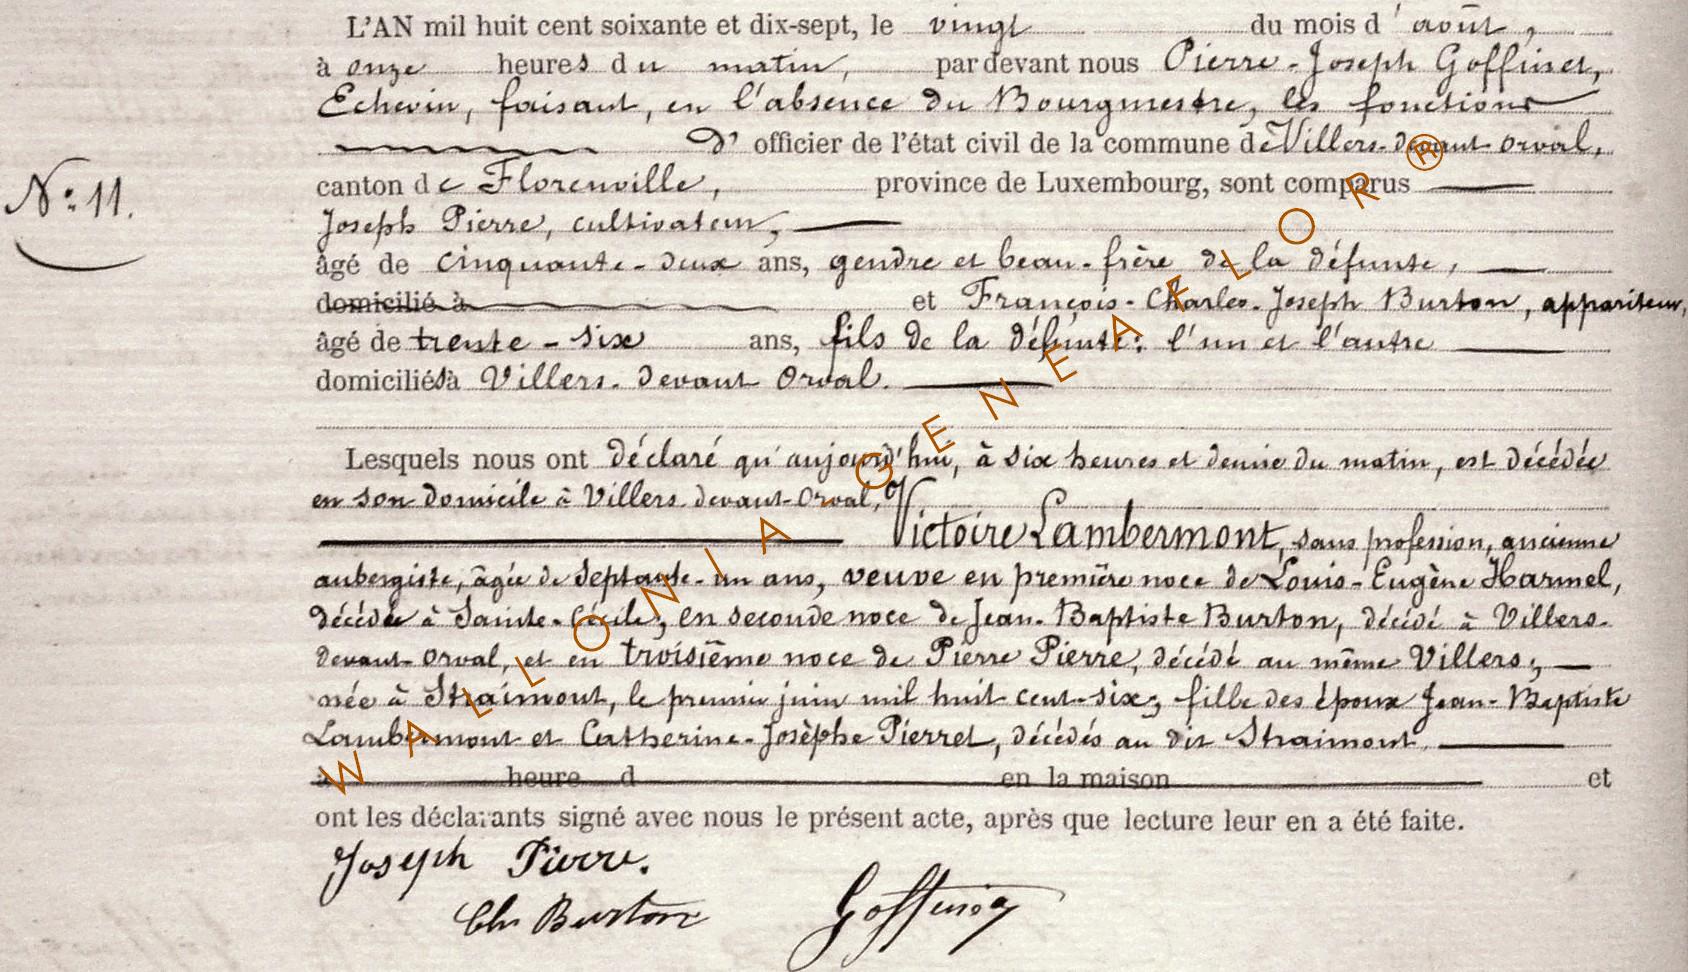 L'AN mil huit cent soixante et dix-sept, le vingt du mois d'août,
à onze heures du matin, par devant nous Pierre-Joseph Goffinet,
Echevin, faisant, en l'absence du Bourgmestre, les fonctions
d'officier de l'état civil de la commune de Villers-devant-Orval,
N° 11.
canton de Florenville, province de Luxembourg, sont comparus
Joseph Pierre, cultivateur,
âgé de cinquante-deux ans, gendre et beau-frère de la défunte,
domicilié à et François-Charles-Joseph Burton, appariteur,
âgé de trente-six ans, fils de la défunte: l'un et l'autre
domiciliés à Villers-devant Orval.
Lesquels nous ont déclaré qu'aujourd'hui, à six heures et demie du matin, est décédée
en son domicile à Villers-devant-Orval,
Victoire Lambermont, sans profession, ancienne
aubergiste, âgée de septante-un ans, veuve en première noce de Louis-Eugène Harmel,
décédée à Sainte-Cécile, en seconde noce de Jean-Baptiste Burton, décédé à Villers-
devant-Orval, et en troisième noce de Pierre Pierre, décédé au même Villers;
née à Straimont, le premier juin mil huit cent-six; fille des époux Jean-Baptiste
Lambermont et Catherine-Josèphe Pierret, décédés au dit Straimont.
à heure d en la maison et
ont les déclarants signé avec nous le présent acte, après que lecture leur en a été faite.
Joseph Pierre.
Ch Burton
Goffinet
WALLONIA-GENEAFLOR®